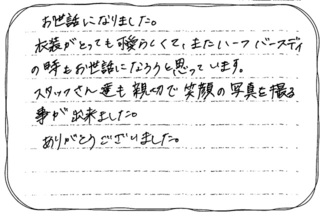 お世話になりました。
衣装がとっても可愛らしくて、またハーフバースディ
の時もお世話になろうと思っています。
スタッフさん達も親切で笑顔の写真を撮る
事が出来ました。
ありがとうございました。